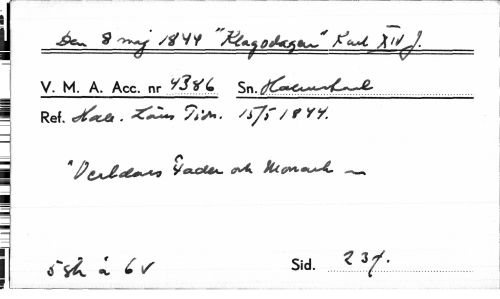 Den 8 maj 1844 "Klagodagen" Karl XIV J.
V. M. A. Acc. nr 4386 Sn. Halmstad
Ref. Hall. Läns Tidn. 15/5 1844.
"Verldars Fader och Monark —
5 str à 6 v Sid. 237.